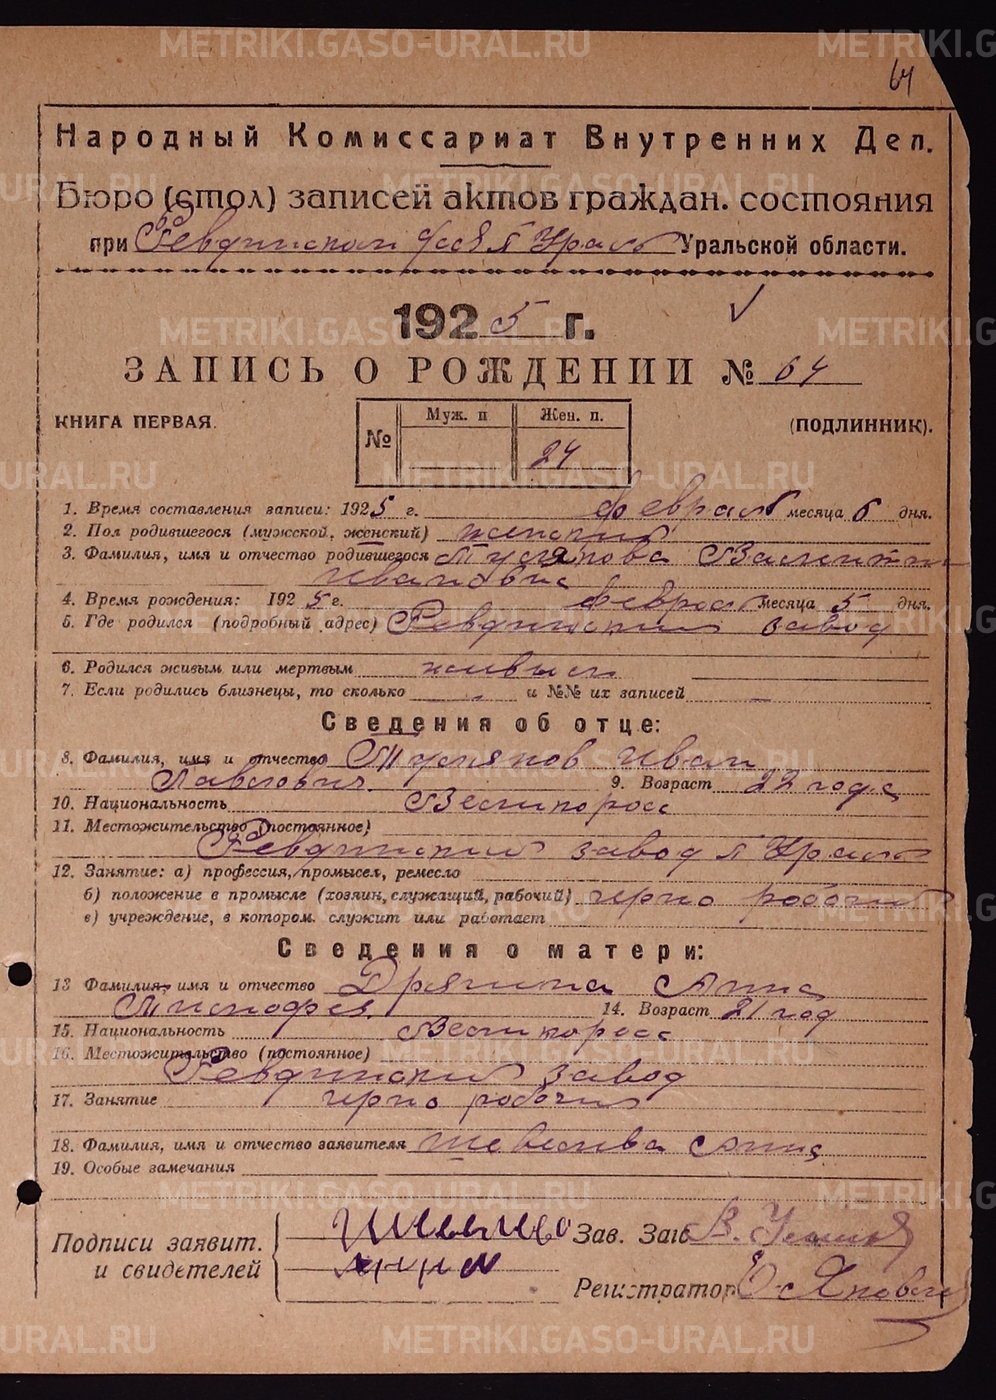 64
Народный Комиссариат Внутренних Дел.
Бюро (стол) записей актов граждан. состояния
при Ревдинском Урал Уральской области.
1925 г.
ЗАПИСЬ О РОЖДЕНИИ № 64
КНИГА ПЕРВАЯ. (ПОДЛИННИК).
№ Муж. п Жен. п.
24
1. Время составления записи: 1925 г. Февраля месяца 6 дня.
2. Пол родившегося (мужской, женский) женский
3. Фамилия, имя и отчество родившегося Валенти
Ивановна
4. Время рождения: 1925 г. Февраля месяца 5 дня.
5. Где родился (подробный адрес) Ревдинский завод
6. Родился живым или мертвым живым
7. Если родились близнецы, то сколько - и №№ их записей -
Сведения об отце:
8. Фамилия, имя и отчество Иван
Павлович 9. Возраст 22 года
10. Национальность Великоросс
11. Местожительство (постоянное)
Ревдинский завод Урал
12. Занятие: а) профессия, промысел, ремесло
б) положение в промысле (хозяин, служащий, рабочий) черно рабочий
в) учреждение, в котором. служит или работает
Сведения о матери:
13 Фамилия, имя и отчество Дрягина Анна
Тимофев 14. Возраст 21 год
15. Национальность Великоросс
16. Местожительство (постоянное)
Ревдинский завод
17. Занятие черно рабочий
18. Фамилия, имя и отчество заявителя Анна
19. Особые замечания
Подписи заявит. Зав. Заг В.
и свидетелей
Регистратор
METRIKI.GASO-URAL.RU